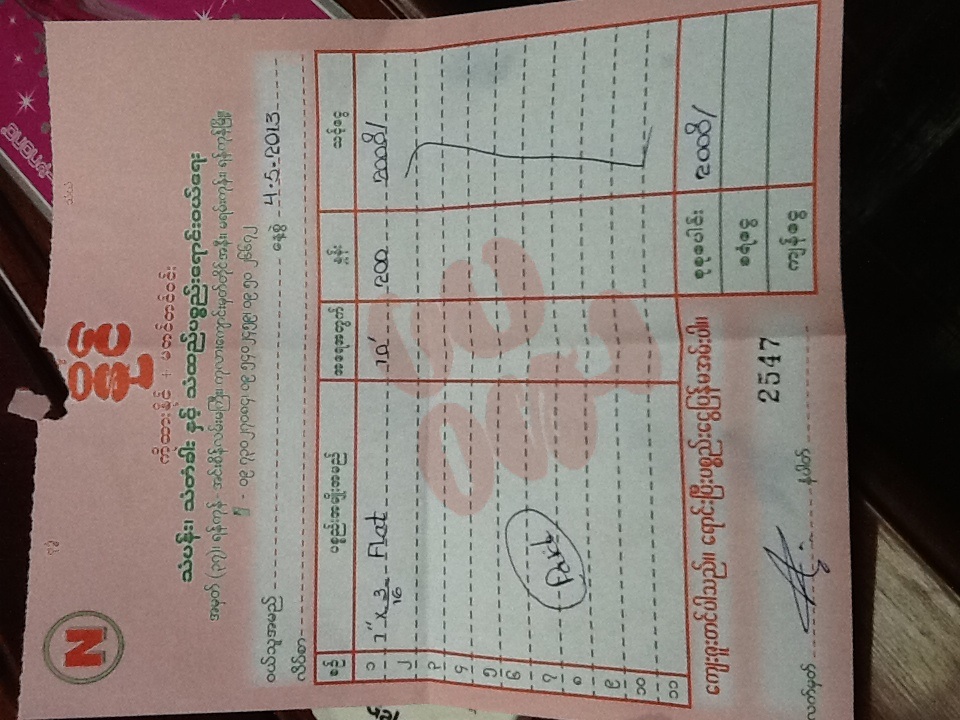 N
နိုင်
ကိုထားနိုင် + မတင်တင်ဝင်း
သံပန်း၊ သံတံခါး နှင့် သံထည်ပစ္စည်းရောင်းဝယ်ရေး
အမှတ် (၃၇)၊ ရန်ကုန် - အင်းစိန်လမ်းမကြီး၊ ကုလားကျောင်းမှတ်တိုင်အနီး၊ မရမ်းကုန်း၊ ရန်ကုန်မြို့။
- ၀၉ ၇၃၀၂၇၀၈၄၊ ၀၉ ၅၄၀၂၄၅၉၊ ၀၉ ၅၀ ၂၆၆၇၂
ဝယ်သူအမည် နေ့စွဲ 4.5.2013
လိပ်စာ
စဉ် ပစ္စည်းအမျိုးအမည် အရေအတွက် နှုန်း သင့်ငွေ
၁ 1" x 3/16 Flat 10' ၂၀၀ ၂၀၀၀ိ/
၂
၃
၄
၅
၆
၇ Paid
၈
၉
၁၀
၁၁
ကျေးဇူးတင်ပါသည်။ ရောင်းပြီးပစ္စည်းငွေပြန်မအမ်းပါ။ စုစုပေါင်း ၂၀၀၀ိ/
စရံငွေ
2547
ကျန်ငွေ
လက်မှတ် နံပါတ်